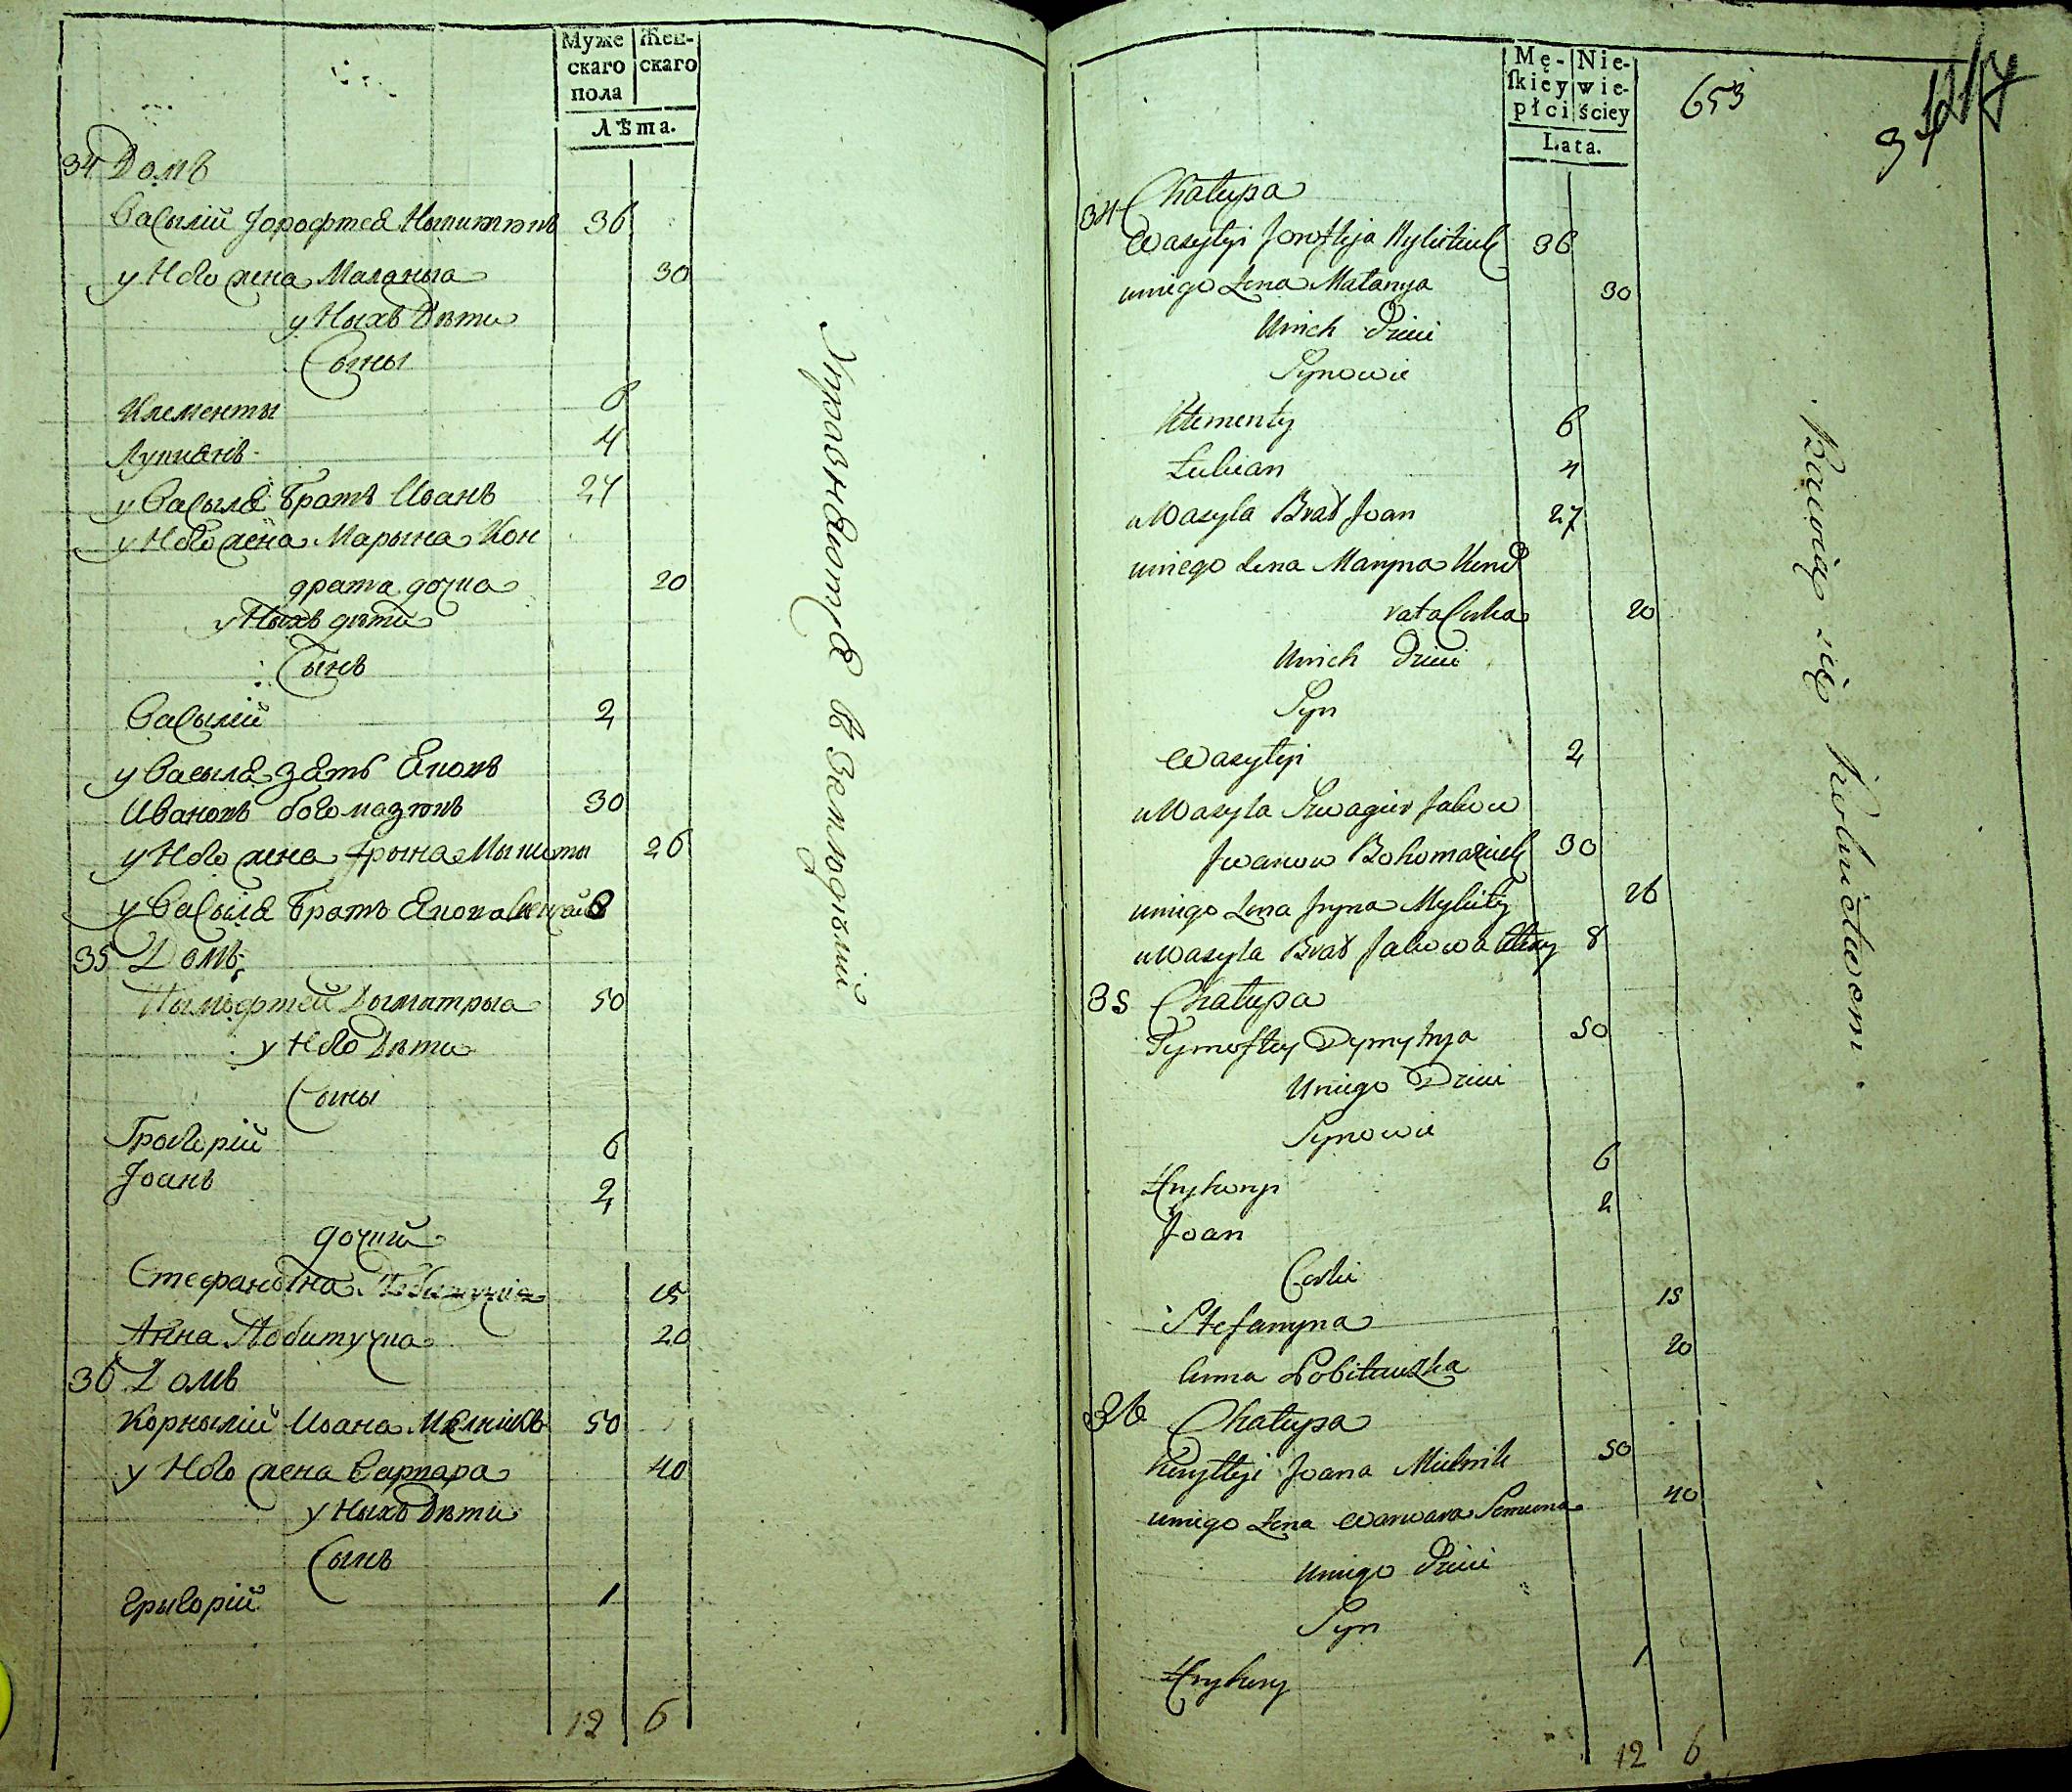 Муже
скаго
пола
Жен-
скаго
Лѣта.
34 Домъ
Василій Дорофтея Микитюкъ 36
у Него жена Маланьıа 30
у Ныхъ Дѣти
Сыны
Клементы 6
Лукиянъ 4
у Василя Братъ Иванъ 27
у Него жена Марына Кон
драта дочка 20
у Ныхъ дѣти
Сынъ
Василій 2
у Василя зять Яковъ
Ивановъ богомазюкъ 30
у Него жена Ирына Мыкиты 26
у Василя Братъ Якова 8
35 Домъ
Тымофтей Дымитрыа 50
у Него Дѣти
Сыны
Григорій 6
Іоанъ 2
дочки
Стефанына 15
Анна Побитучка 20
36 Домъ
Корнылій Ивана Мелникъ 50
у Него жена Варвара 40
у Ныхъ Дѣти
Сынъ
Григорій 1
12 6
Упражняются в Земледѣлій
Mę-
ſkiey
płci
Nie-
wie-
ściey
Lata.
653
34 Chałupa
Wasylyi Jorofteja Mykitiuk 36
u niego Żona Małanya 30
U nich Dzieci
Synowie
Klementy 6
Łukian 4
u Wasyla Brat Joan 27
u niego Żona Maryna Kond
rata Curka 20
U nich Dzieci
Syn
Wasylyi 2
u Wasyla Szwagier Jakow
Jwanow Bohomaziuk 30
u niego Żona Jryna Mykity 26
u Wasyla Brat Jakowa 8
35 Chałupa
Tymoftey Dymytrya 50
U niego Dzieci
Synowie
Hryhoryi 6
Joan 2
Corki
Stefanyna 15
Anna Pobituczka 20
36 Chałupa
Joana Mielnik 50
u niego Żona Warwara Semena 40
U niego Dzieci
Syn
Hryhory 1
12 6
Bawią się rolnictwem